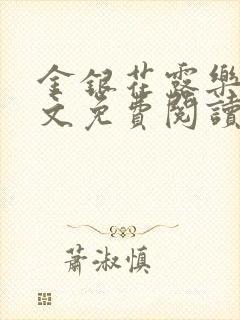 金銀花露樂
文免費閱讀
蕭淑慎